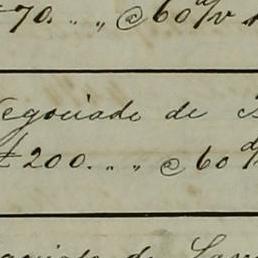 £70. „ „ @ 60 d/v
Negociado de
£200. „ „ @ 60 d/
de